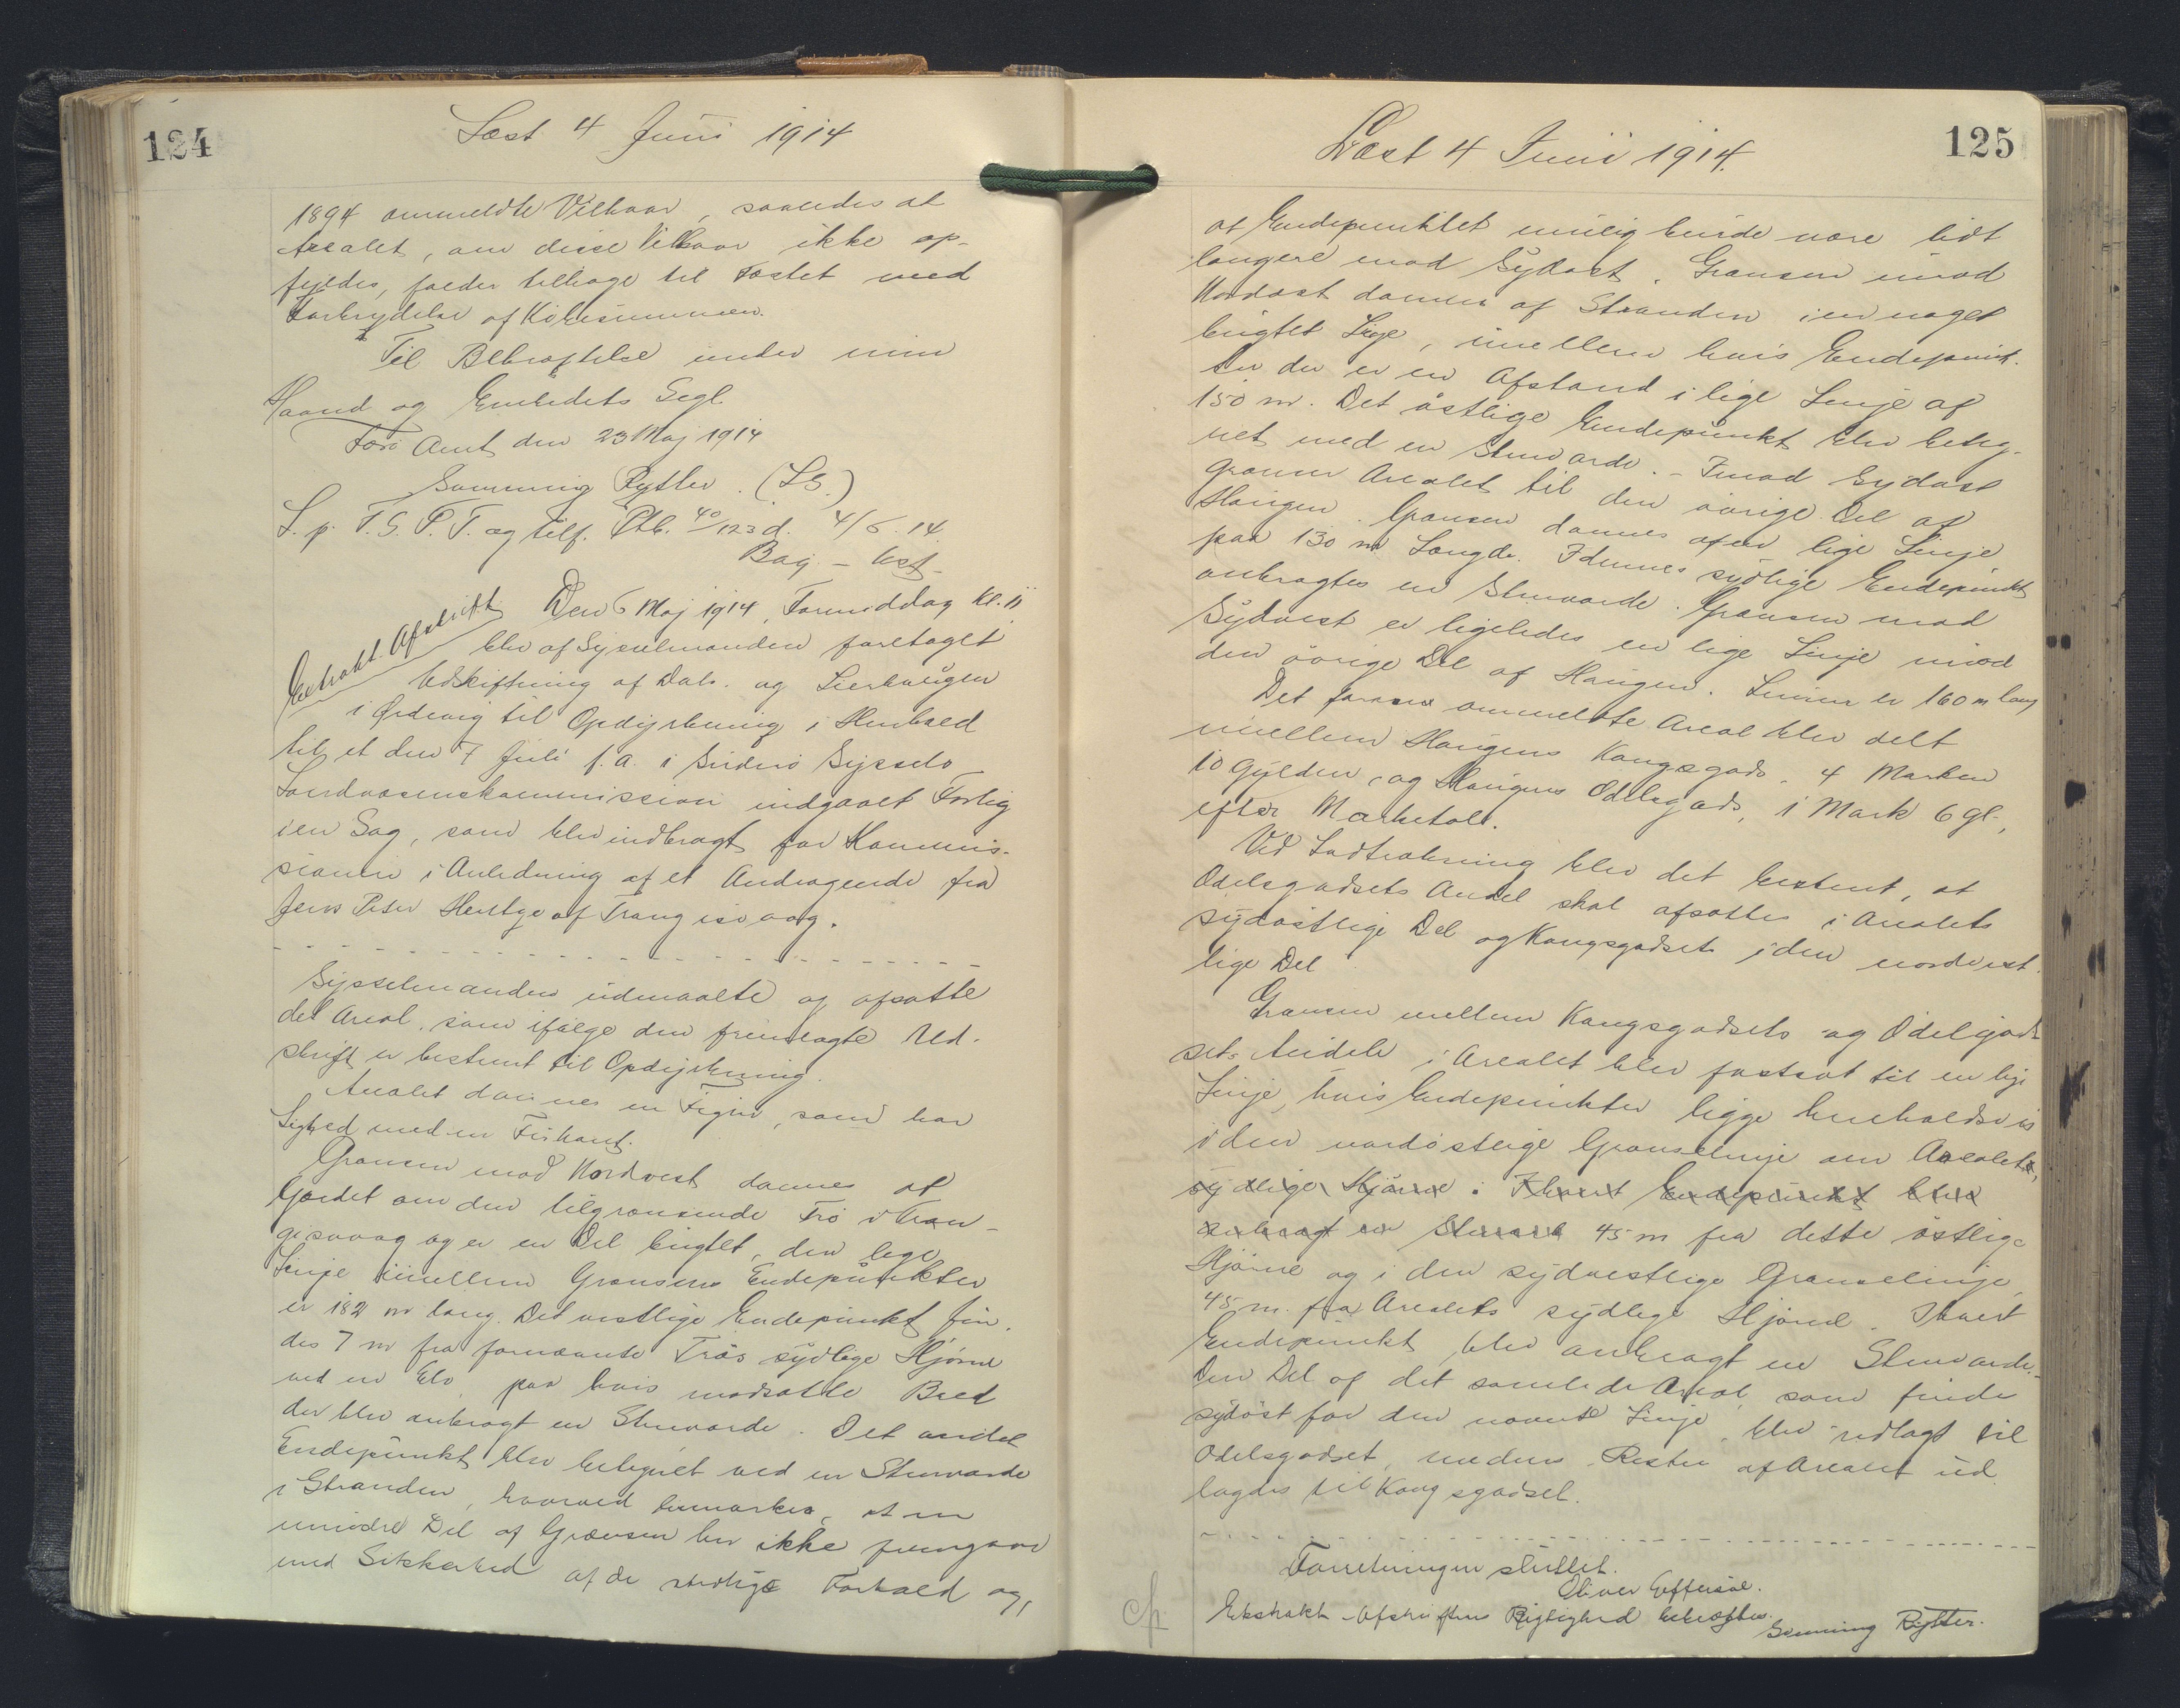 124
Læst 4 Juni 1914
1894 ommeldte Vilkaar, saaledes at
Arealet, om disse Vilkaar ikke op-
fyldes, falder tilbage til Fæstet med
Forbrydelse af Købesummen.
Til Bekræftelse under min
Haand og Embedets Segl.
Færø Amt den 23 Maj 1914
Svenning Rytter. (L.S.)
L. p. F. S. P. T. og tilf. Ptb. 40/123 d. 4/6. 14.
Bag - Est-
Extrakt. Afskrift
Den 6 Maj 1914, Formiddag Kl. 11
blev af Sysselmanden foretaget
Udskiftning af Dals- og
i Ørdevig til Opdyrkning i Henhold
til et den 7 Juli f. A. i Suderø Syssels
Landvæsenskommission indgaaet Forlig
i en Sag, som blev indbragt for Kommis-
sionen i Anledning af et Andragende fra
Jens Peter Hentze af Trangisvaag.
Sysselmanden udmaalte og afsatte
det Areal, som ifølge den fremlagte Ud-
skrift er bestemt til Opdyrkning.
Arealet danner en Figur, som har
Lighed med en Firkant.
Grænsen mod Nordvest dannes af
Gærdet om den tilgrænsende Trø i Tran-
gisvaag og er en Del bugtet, den lige
Linje imellem Grænsens Endepunkter
er 182 m lang. Det vestlige Endepunkt fin-
des 7 m fra fornævnte Trøs sydlige Hjørne
ved en Elv, paa hvis modsatte Bred
der blev anbragt en Stenvarde. Det andet
Endepunkt blev betegnet ved en Stenvarde
i Stranden, hvorved bemærkes, at en
mindre Del af Grænsen her ikke fremgaar
med Sikkerhed af de stedlige Forhold og,
125
Læst 4 Juni 1914.
at Endepunktet mulig burde være lidt
længere mod Sydøst. Grænsen imod
Nordøst dannes af Stranden i en noget
bugtet Linje, imellem hvis Endepunk-
ter der er en Afstand i lige Linje af
150 m. Det østlige Endepunkt blev beteg-
net med en Stenvarde. - Imod Sydøst
grænser Arealet til den øvrige Del af
Haugen. Grænsen dannes af en lige Linje
paa 130 m Længde. I dennes sydlige Endepunkt
anbragtes en Stenvarde. Grænsen mod
Sydvest er ligeledes en lige Linje imod
den øvrige Del af Haugen. Linien er 160 m lang
Det foran ommeldte Areal blev delt
imellem Haugens Kongsgods, 4 Marker
10 Gylden, og Haugens Odelsgods, 1 Mark 6 gl.,
efter Marketal.
Ved Lodtrækning blev det bestemt, at
Odelsgodsets Andel skal afsættes i Arealets
sydøstlige Del og Kongsgodsets i den nordvest-
lige Del
Grænsen mellem Kongsgodsets og Odelsgod-
sets Andele i Arealet blev fastsat til en lige
Linje, hvis Endepunkter ligge henholdsvis
i den nordøstlige Grænselinje om Arealets,
sydlige Hjørne. I hvert Endepunkt blev
anbragt en Stenvarde 45 m fra dette østlige
Hjørne og i den sydvestlige Grænselinje
45 m. fra Arealets sydlige Hjørne. I hvert
Endepunkt blev anbragt en Stenvarde.-
Den Del af det samlede Areal, som findes
sydøst for den nævnte Linje, blev udlagt til
Odelsgodset, medens Resten af Arealet ud-
lagdes til Kongsgodset.
Forretningen sluttet.
Oliver Effersøe.
Ekstrakt-Afskriftens Rigtighed bekræftes.
Svenning Rytter.